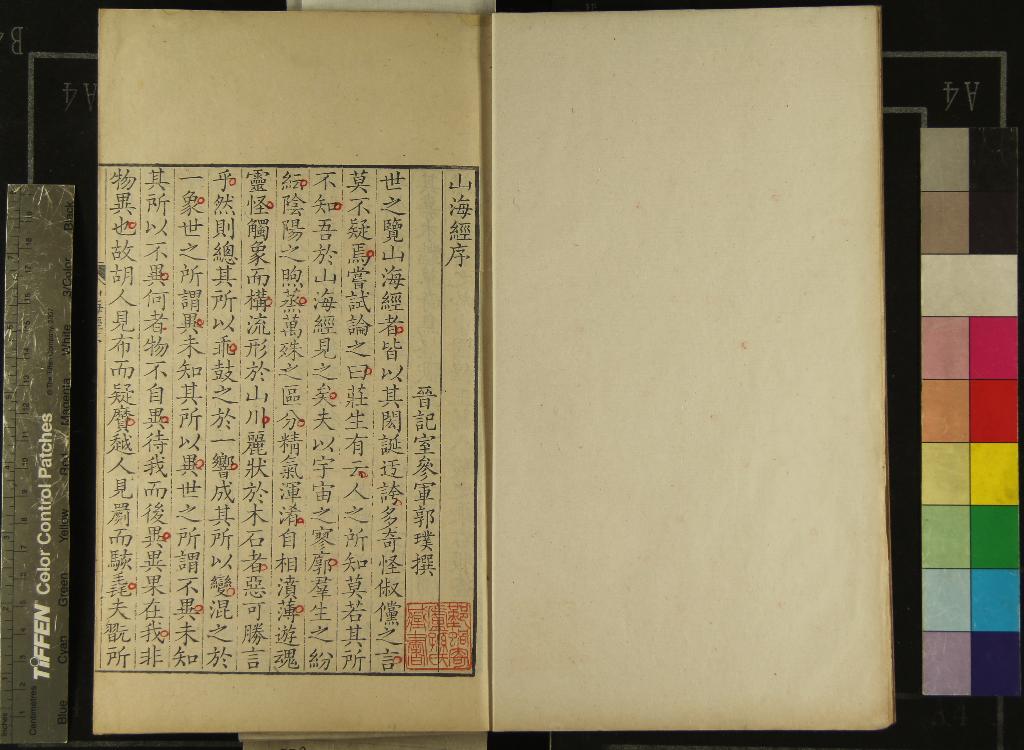 山海經序
晉記室參軍郭璞撰
世之覽山海經者皆以其閎誕迂誇多奇怪俶儻之言
莫不疑焉嘗試論之曰莊生有云人之所知莫若其所
不知吾於山海經見之矣夫以宇宙之寥廓羣生之紛
紜陰陽之煦蒸萬殊之區分精氣渾淆自相濆薄遊魂
靈怪觸象而構流形於山川麗狀於木石者惡可勝言
乎然則總其所以乖鼓之於一響成其所以變混之於
一象世之所謂異未知其所以異世之所謂不異未知
其所以不異何者物不自異待我而後異異果在我非
物異也故胡人見布而疑黂越人見罽而駭毳夫翫所
TIFFEN Color Control Patches
© The Tiffen Company, 2007
Inches
Centimetres
Blue
Cyan
Green
Yellow
Red
Magenta
White
3/Color
Black
A4
A4